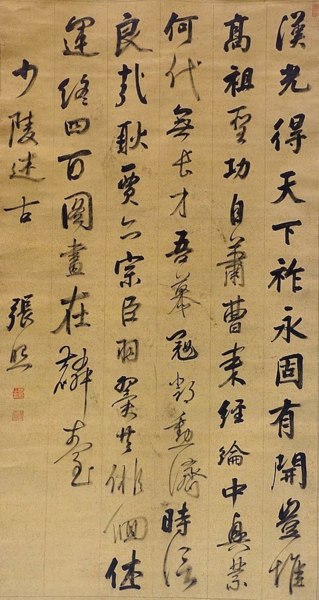 漢光得天下祚永固有開豈惟
高祖聖功自蕭曹來經綸中興業
何代無長才吾慕寇鄧勳濟時信
良哉耿賈亦宗臣羽翼共俳佪休
運終四百圖畫在麟臺
少陵述古 張照